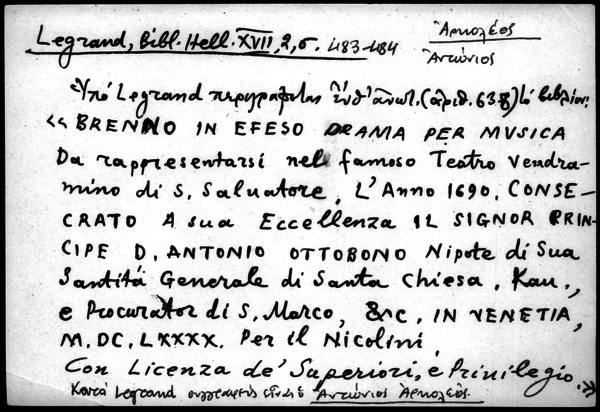 Legrand, Bibl. Hell. XVII, 2, σ. 483-484
Ἀρκολέος
Ἀντώνιος
Ὑπό Legrand περιγράφεται (ἀριθ. 638) τό βιβλίον:
«BRENNO IN EFESO DRAMA PER MVSICA
Da rappresentarsi nel famoso Teatro Vendra-
mino di S. Salvatore, L'Anno 1690. CONSE-
CRATO A sua Eccellenza IL SIGNOR PRIN-
CIPE D. ANTONIO OTTOBONO Nipote di Sua
Santitá Generale di Santa Chiesa, Kau.,
e Procurator di S. Marco, &C. IN VENETIA,
M.DC.LXXXX. Per il Nicolini
Con Licenza de' Superiori, e Priuilegio.»
Κατά Legrand συγγραφεύς εἶναι ὁ Ἀντώνιος Ἀρκολέος.